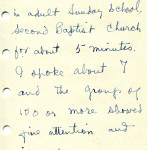 in adult Sunday School,
Second Baptist Church
for about 5 minutes.
I spoke about 7
and the group of
100 or more showed
fine attention and